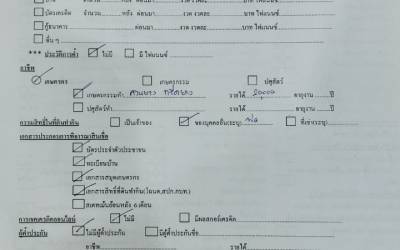 บัตรเครดิต จำนวน........หลัง ผ่อนมา........งวด งวดละ........บาท ไฟแนนซ์
กู้ธนาคาร จำนวน........หลัง ผ่อนมา........งวด งวดละ........บาท ไฟแนนซ์
อื่น ๆ
*** ประวัติการค้ำ ไม่มี มี ไฟแนนซ์
อาชีพ
เกษตรกร เกษตรกรรม ปศุสัตว์
เกษตรกรรมทำ สวนยาง กรีดยาง รายได้ 20,000 อายุงาน ปี
ปศุสัตว์ทำ รายได้ อายุงาน ปี
กรรมสิทธิ์ในที่ดินทำกิน เป็นเจ้าของ ของบุคคลอื่น(ระบุ) พ่อ ที่เช่า(ระบุ)
เอกสารประกอบการพิจารณาสินเชื่อ
บัตรประจำตัวประชาชน
ทะเบียนบ้าน
เอกสารสมุดเกษตรกร
เอกสารสิทธิ์ที่ดินทำกิน(โฉนด,สปก.ภบท.)
สเตทเม้นย้อนหลัง 6 เดือน
ไม่มี มีผลสกอร์เครดิต
ผู้ค้ำประกัน ไม่มีผู้ค้ำประกัน มีผู้ค้ำประกันชื่อ
อาชีพ รายได้ อายุงาน